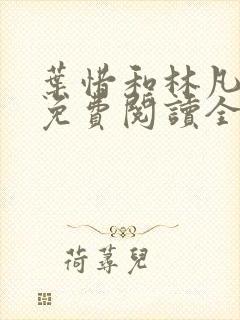 葉惜和林凡
免費閱讀全
荷蕁兒